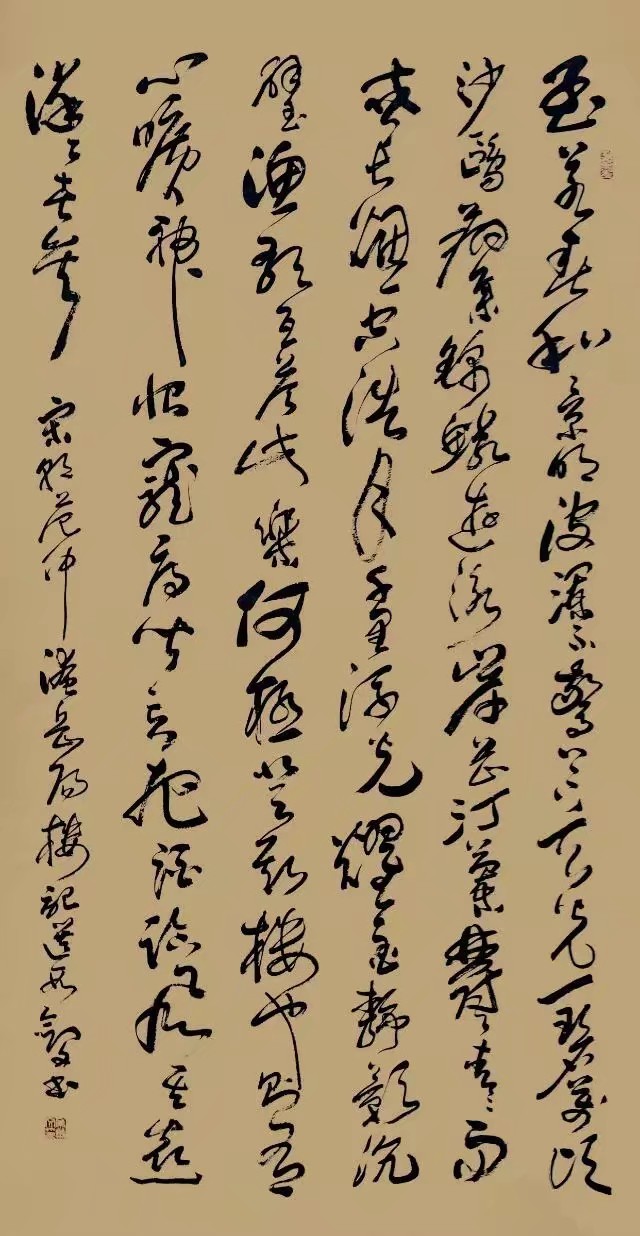 至若春和景明波瀾不驚上下天光一碧萬頃
沙鷗翔集錦鱗遊泳岸芷汀蘭鬱鬱青青而
或長煙一空浩月千里浮光耀金靜影沉
璧漁歌互答此樂何極登斯樓也則有
心曠神怡寵辱皆忘把酒臨風其喜
洋洋者矣 宋朝范仲淹岳陽樓記選 書